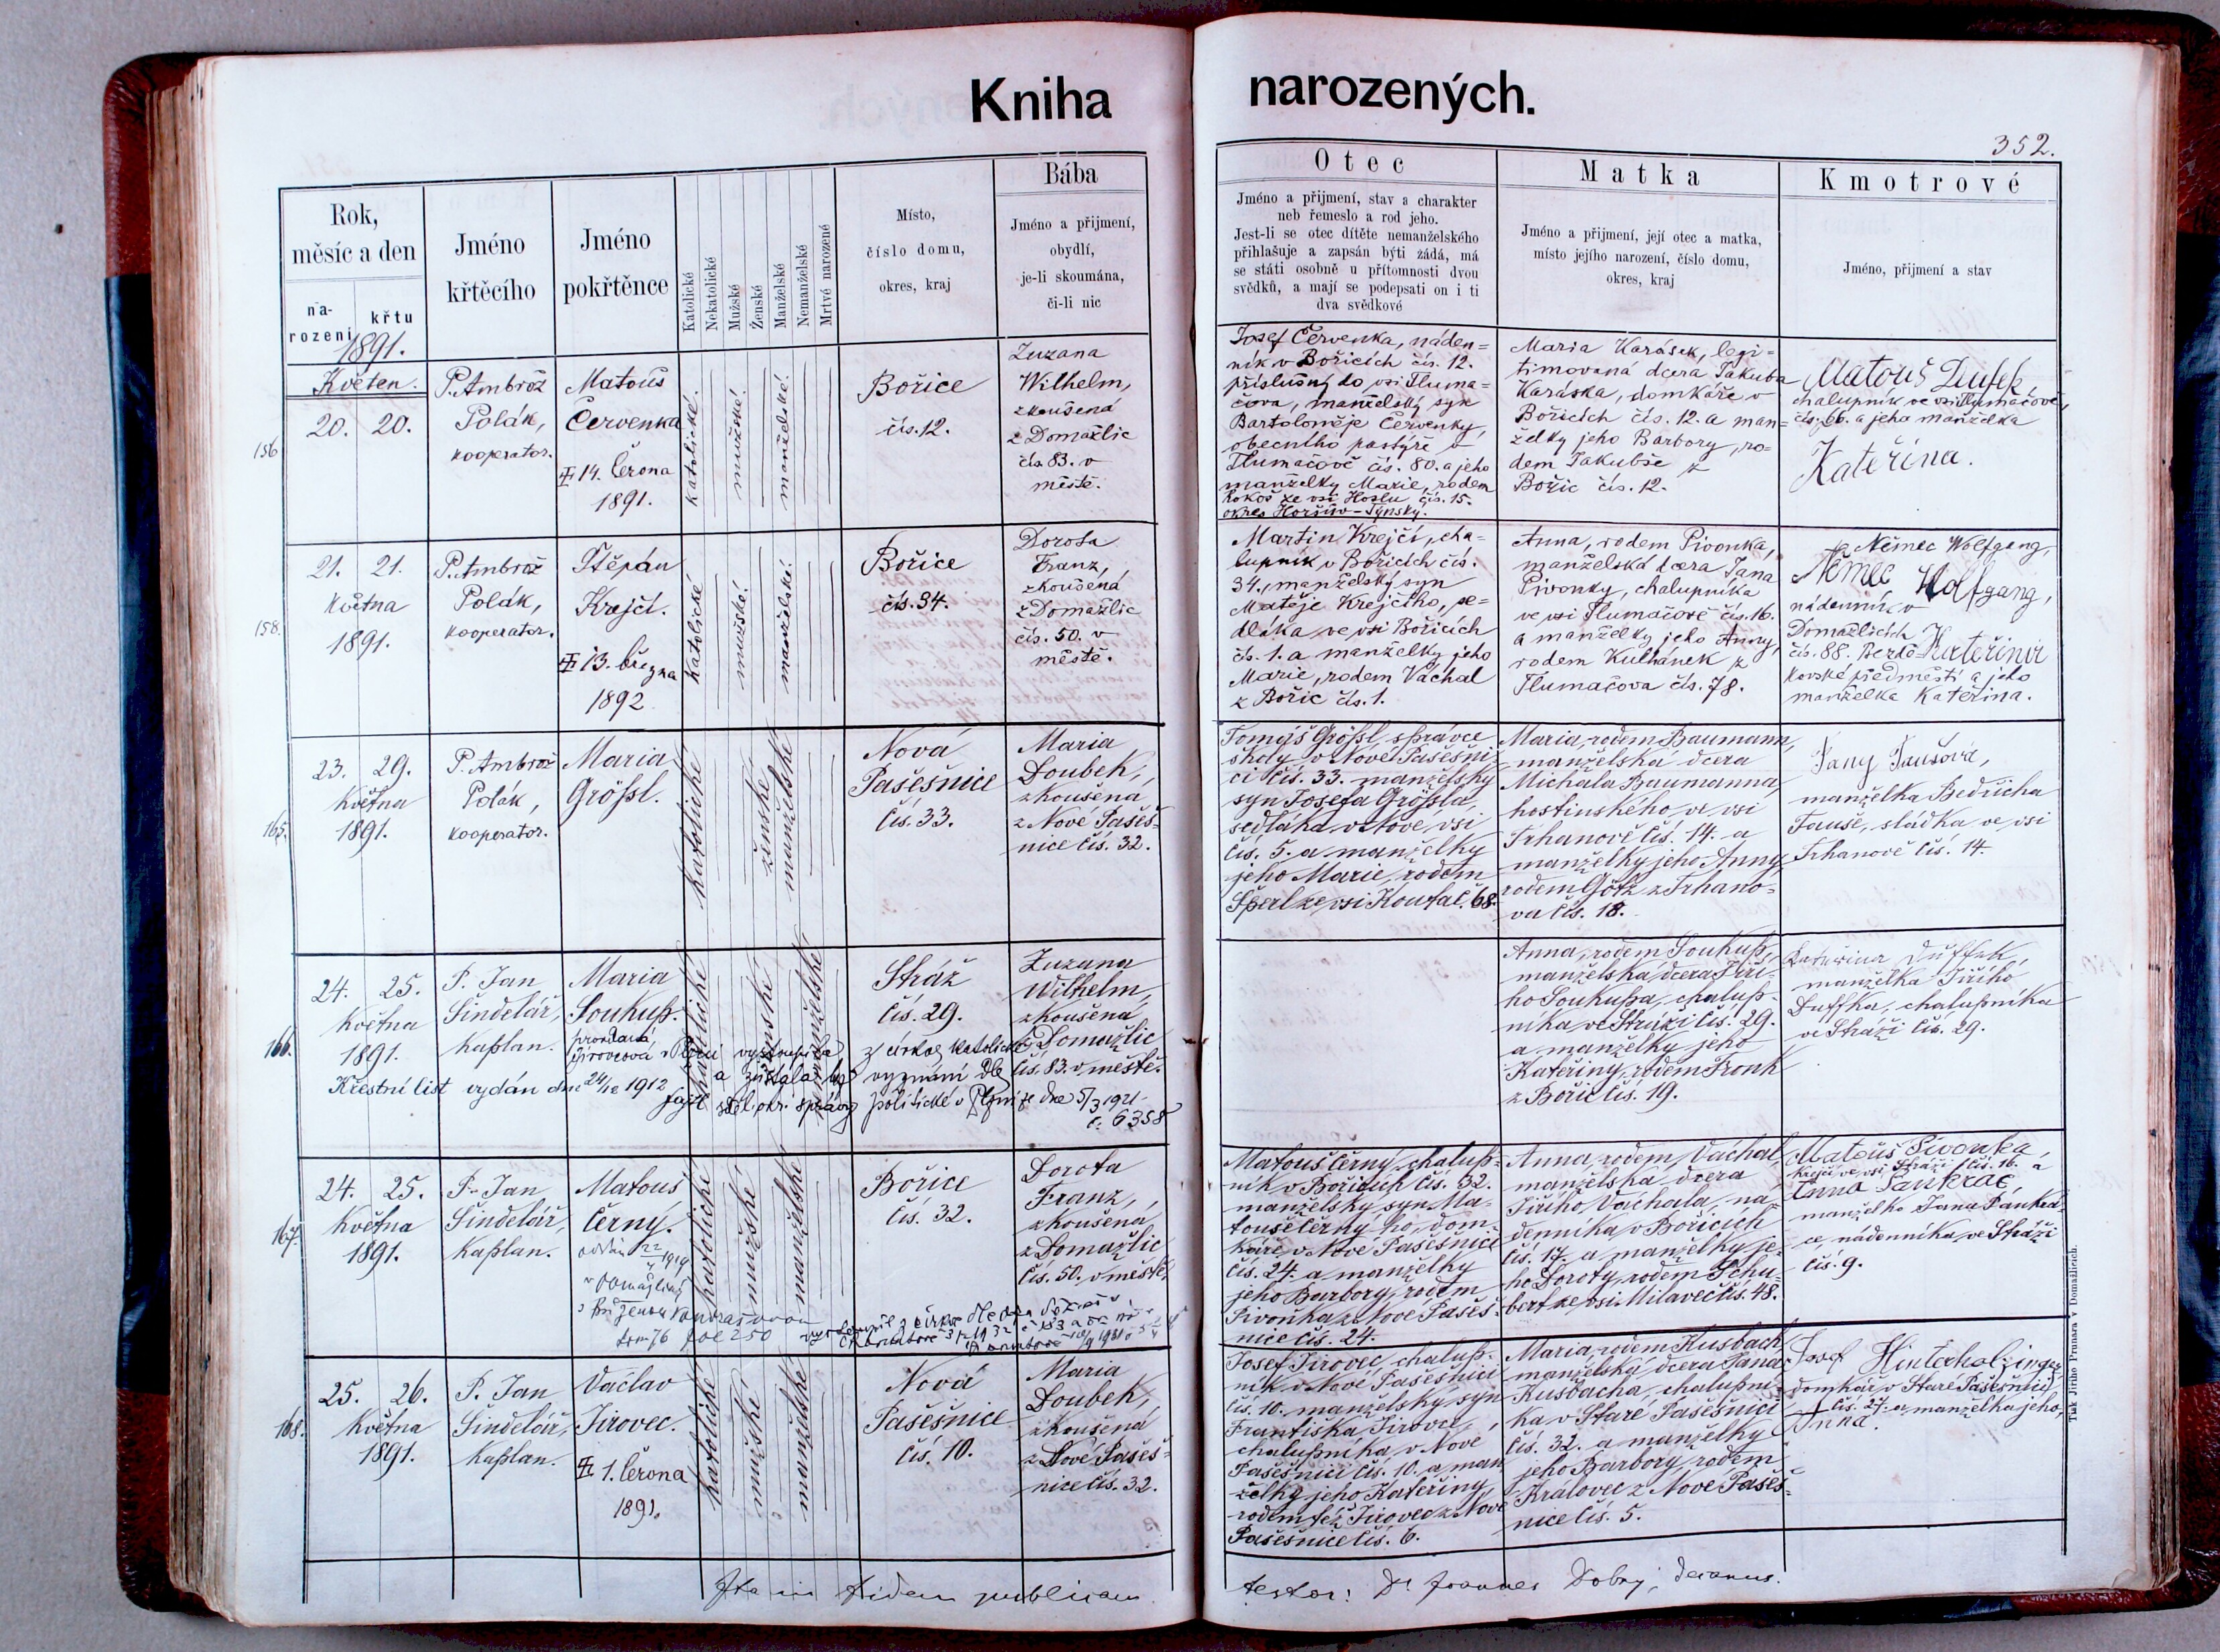 Kniha narozených.
352.
Rok,
měsíc a den
na-
rozeni
křtu
Jméno
křtěcího
Jméno
pokřtěnce
Katolické
Nekatolické
Mužské
Ženské
Manželské
Nemanželské
Mrtvé narozené
Místo,
číslo domu,
okres, kraj
Bába
Jméno a přijmení,
obydlí,
je-li skoumána,
či-li nic
Otec
Jméno a přijmení, stav a charakter
neb řemeslo a rod jeho.
Jest-li se otec dítěte nemanželského
přihlašuje a zapsán býti žádá, má
se státi osobně u přítomnosti dvou
svědků, a mají se podepsati on i ti
dva svědkové
Matka
Jméno a přijmení, její otec a matka,
místo jejího narození, číslo domu,
okres, kraj
Kmotrové
Jméno, přijmení a stav
1891.
Květen.
156
20. 20.
P. Ambrož
Polák,
kooperator.
Matouš
Červenka
14. června
1891.
katolické.
mužské.
manželské.
Bořice
čís. 12.
Zuzana
Wilhelm,
zkoušená
z Domažlic
čís. 83. v
městě.
Josef Červenka, náden=
ník v Bořicích čís. 12.
příslušný do vsi Tluma=
čova, manželský syn
Bartoloměje Červenky,
obecního pastýře v
Tlumačově čís. 80. a jeho
manželky Marie, rodem
Kokoš ze vsi Hoslu čís. 15.
okres Horšův-Týnský.
Maria Karásek, legi=
timovaná dcera Jakuba
Karáska, domkáře v
Bořicích čís. 12. a man=
želky jeho Barbory, ro=
dem Jakubše z
Bořic čís. 12.
Matouš Dufek,
chalupník ve vsi Tlumačově,
čís. 66. a jeho manželka
Kateřina.
158.
21. 21.
května
1891.
P. Ambrož
Polák,
kooperator.
Štěpán
Krejčí.
13. března
1892
katolické
mužské.
manželské.
Bořice
čís. 34.
Dorota
Franz,
zkoušená
z Domažlic
čís. 50. v
městě.
Martin Krejčí, cha=
lupník v Bořicích čís.
34., manželský syn
Matěje Krejčího, se=
dláka ve vsi Bořicích
čís. 1. a manželky jeho
Marie, rodem Váchal
z Bořic čís. 1.
Anna, rodem Pivonka,
manželská dcera Jana
Pivonky, chalupníka
ve vsi Tlumačově čís. 16.
a manželky jeho Anny,
rodem Kulhánek z
Tlumačova čís. 78.
Němec Wolfgang,
Němec Wolfgang,
nádenník v
Domažlicích
čís. 88. Bezdě= Kateřina
kovské předměstí a jeho
manželka Kateřina.
165.
23. 29.
května
1891.
P. Ambrož
Polák,
kooperator.
Maria
Grössl.
katolické
ženské
manželské
Nová
Pašešnice
čís. 33.
Maria
Doubek,
zkoušená
z Nové Pašeš=
nice čís. 32.
Tomáš Grössl, správce
školy v Nové Pašešni=
ci čís. 33. manželský
syn Josefa Grössla,
sedláka v Nové vsi
čís. 5. a manželky
jeho Marie, rodem
Šperl ze vsi Kouta č. 68.
Maria, rodem Baumann,
manželská dcera
Michala Baumanna,
hostinského ve vsi
Trhanově čís. 14. a
manželky jeho Anny,
rodem Götz z Trhano=
va čís. 18.
Fany Taušová,
manželka Bedřicha
Tauše, sládka ve vsi
Trhanově čís. 14.
166.
24. 25.
května
1891.
P. Jan
Šindelář,
kaplan.
Maria
Soukup.
provdaná
katolické
ženské
nemanželské
Stráž
čís. 29.
Zuzana
Wilhelm,
zkoušená
z Domažlic
čís. 83. v městě.
v Plzni vystoupila z církve katolické
a zůstala bez vyznání dle
Křestní list vydán dne 24/12 1912
sděl. okr. správy politické v Plzni ze dne 5/3 1921
č. 6358
Anna, rodem Soukup,
manželská dcera Jiří-
ho Soukupa, chalup-
níka ve Stráži čís. 29.
a manželky jeho
Kateřiny, rodem Fronk
z Bořic čís. 19.
Kateřina Duffek,
manželka Jiřího
Duffka, chalupníka
ve Stráži čís. 29.
167.
24. 25.
května
1891.
P. Jan
Šindelář,
kaplan.
Matouš
Černý.
oddán 22/4 1919
v Domažlicích
katolické
mužské
manželské
Bořice
čís. 32.
Dorota
Franz,
zkoušená
z Domažlic
čís. 50. v městě.
fol 250
Matouš Černý, chalup=
ník v Bořicích čís. 32.
manželský syn Ma-
touše Černýho, dom-
káře v Nové Pašešnici
čís. 24. a manželky
jeho Barbory, rodem
Pivonka z Nové Pašeš-
nice čís. 24.
Anna, rodem Váchal,
manželská dcera
Jiřího Váchala, ná-
denníka v Bořicích
čís. 17. a manželky je-
ho Doroty, rodem Schu-
bert ze vsi Milavec čís. 48.
Matouš Pivonka,
krejčí ve vsi Stráži čís. 16. a
Anna Pankrac,
manželka Jana Pankrá-
ce, nádenníka ve Stráži
čís. 9.
168.
25. 26.
května
1891.
P. Jan
Šindelář,
kaplan.
Václav
Jirovec.
1. června
1891.
katolické
mužské
manželské
Nová
Pašešnice
čís. 10.
Maria
Doubek,
zkoušená
z Nové Pašeš=
nice čís. 32.
Josef Jirovec, chalup-
ník v Nové Pašešnici
čís. 10. manželský syn
Františka Jirovce,
chalupníka v Nové
Pašešnici čís. 10. a man-
želky jeho Kateřiny,
rodem též Jirovec z Nové
Pašešnice čís. 6.
Maria, rodem Kusbach,
manželská dcera Jana
Kusbacha, chalupní-
ka v Staré Pašešnici
čís. 32. a manželky
jeho Barbory, rodem
Královec z Nové Pašeš=
nice čís. 5.
Josef Hinterholzinger,
domkář v Staré Pašešnici
čís. 27. a manželka jeho,
Anna.
Ita in fidem publicam
testor: Dr Joannes Dobrý, decanus.
Tisk Jiřího Prunara v Domažlicích.